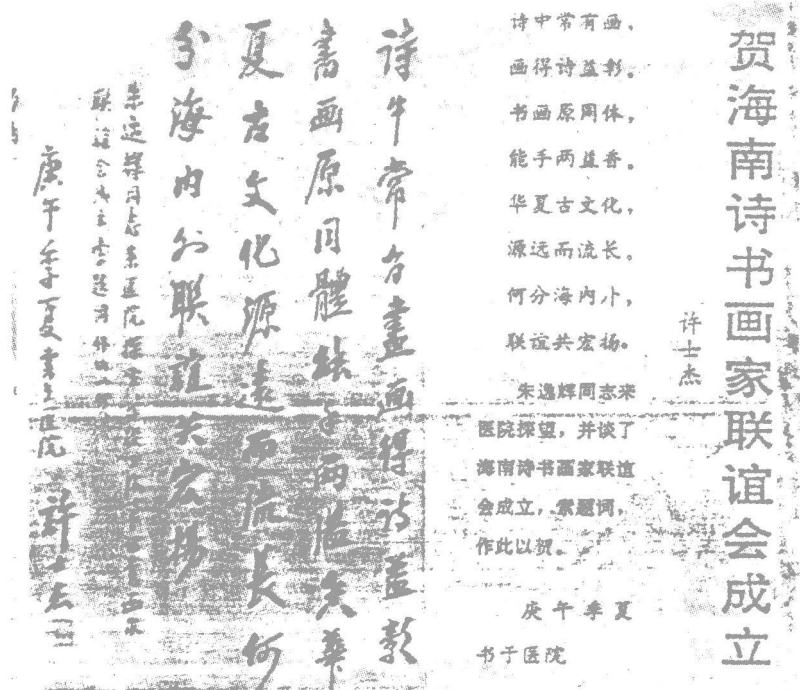 贺海南诗书画家联谊会成立
许士杰
诗中常有画，
画得诗益彰。
书画原同体，
能手两益香。
华夏古文化，
源远而流长。
何分海内外，
联谊共宏扬。
朱逸辉同志来
医院探望，并谈了
海南诗书画家联谊
会成立，索题词，
作此以贺。
庚午季夏
书于医院
诗中常有畫画得诗益彰
書画原同體能手两益香華
夏古文化源遠而流长何
分海内外联谊共宏扬
朱逸辉同志来医院探
联谊会成立索题词作此以贺
庚午季夏書于医院
許士杰